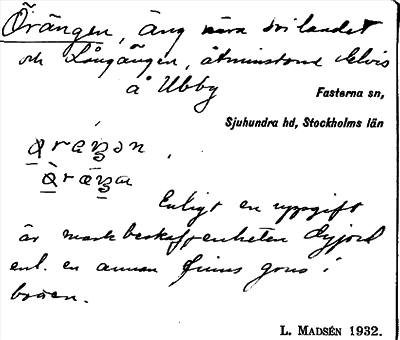 Örängen, äng nära Svilandet
och Långängen, åtminstone delvis
å Ubby
Fasterna sn,
Sjuhundra hd, Stockholms län
Enligt en uppgift
är markbeskaffenheten dyjord
enl. en annan finns grus i
botten.
L. MADSÉN 1932.